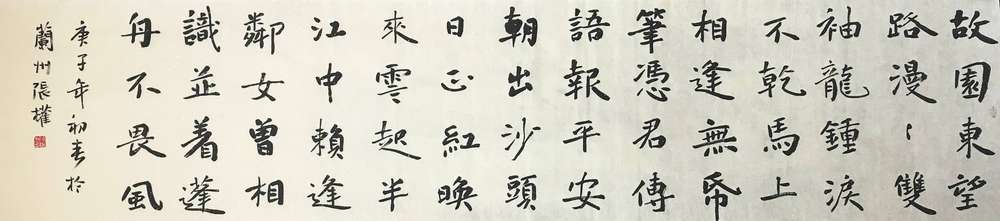 故園東望
路漫〻雙
袖龍鍾淚
不乾馬上
相逢無帋
筆憑君傳
語報平安
朝出沙頭
日正紅晚
來雲起半
江中賴逢
鄰女曾相
識並着蓮
舟不畏風
庚子年初春於
蘭州張權